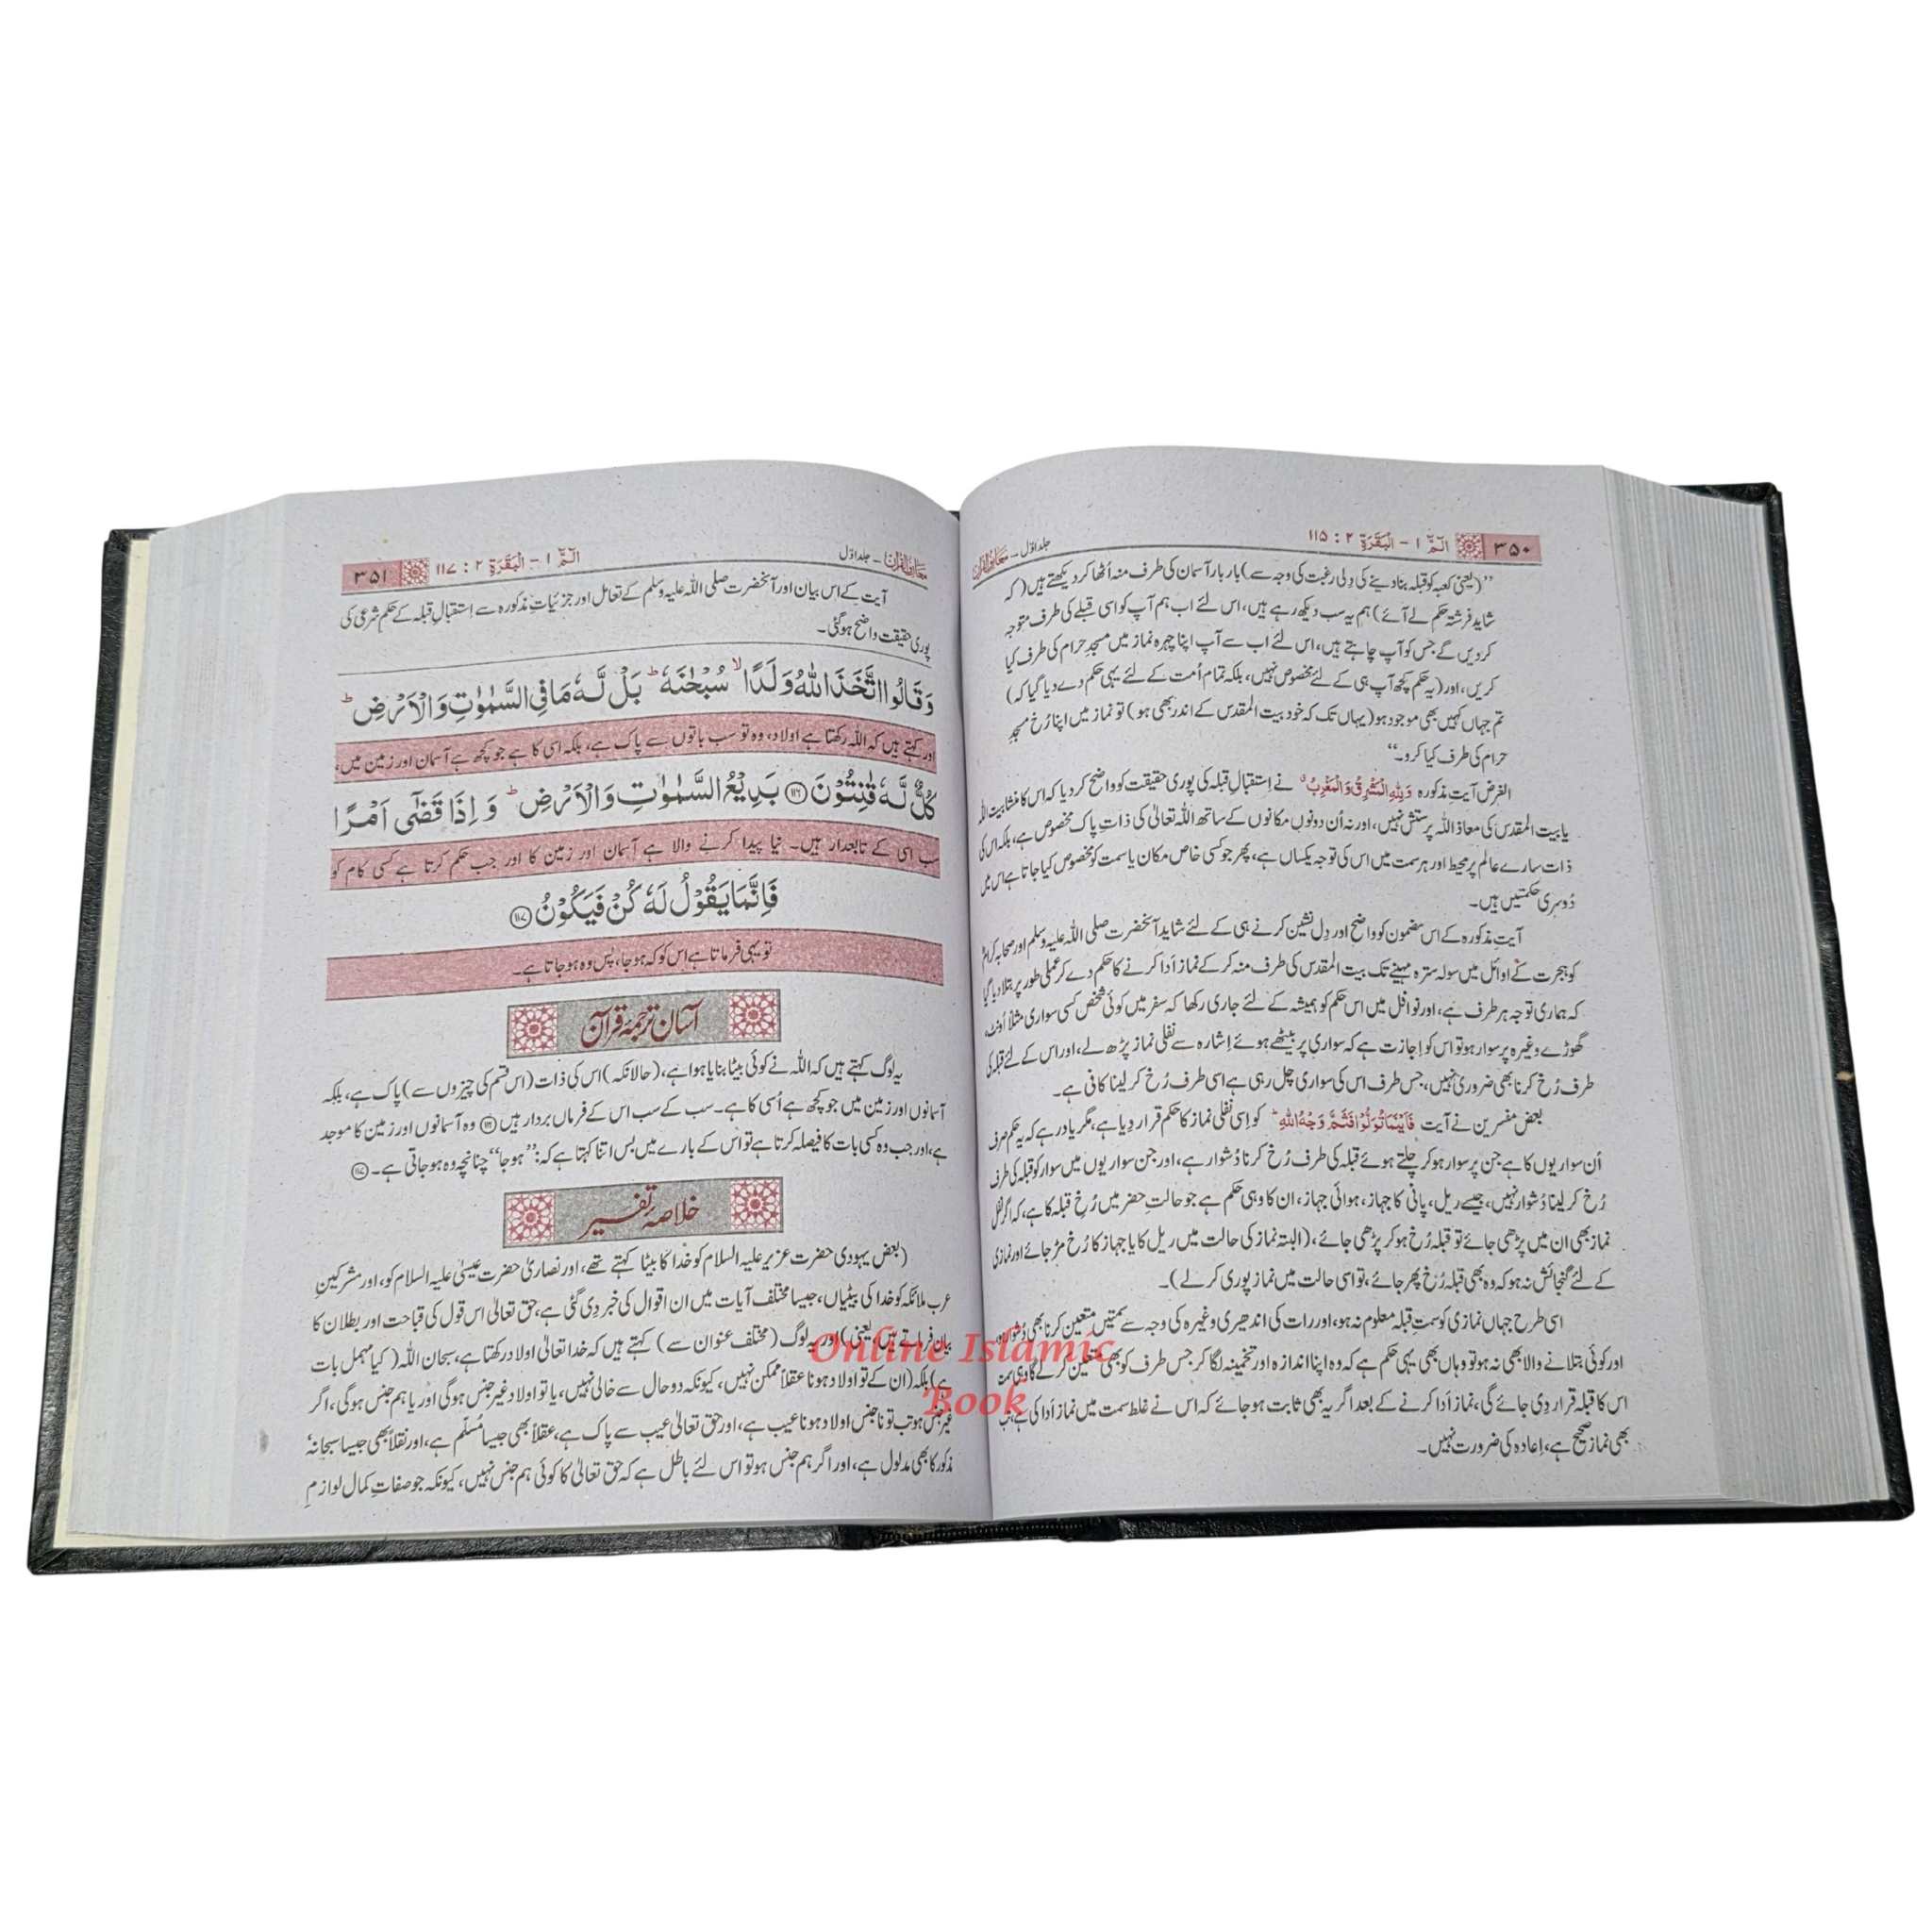 ۳۵۰ الٓمّٓ ۱ - اَلْبَقَرَة ۲ : ۱۱۵ جلد اوّل - معارف القرآن
”(یعنی کعبہ کو قبلہ بنا دینے کی دِلی رغبت کی وجہ سے) بار بار آسمان کی طرف منہ اُٹھا کر دیکھتے ہیں (کہ
شاید فرشتہ حکم لے آئے) ہم یہ سب دیکھ رہے ہیں، اس لئے اب ہم آپ کو اسی قبلے کی طرف متوجہ
کر دیں گے جس کو آپ چاہتے ہیں، اس لئے اب سے آپ اپنا چہرہ نماز میں مسجدِ حرام کی طرف کیا
کریں، اور (یہ حکم کچھ آپ ہی کے لئے مخصوص نہیں، بلکہ تمام اُمت کے لئے یہی حکم دے دیا گیا کہ)
تم جہاں کہیں بھی موجود ہو (یہاں تک کہ خود بیت المقدس کے اندر بھی ہو) تو نماز میں اپنا رُخ مسجدِ
حرام کی طرف کیا کرو۔“
الغرض آیتِ مذکورہ وَلِلّٰهِ الْمَشْرِقُ وَالْمَغْرِبُ نے اِستقبالِ قبلہ کی پوری حقیقت کو واضح کر دیا کہ اس کا منشا بیت اللہ
یا بیت المقدس کی معاذ اللہ پرستش نہیں، اور نہ اُن دونوں مکانوں کے ساتھ اللہ تعالیٰ کی ذاتِ پاک مخصوص ہے، بلکہ اس کی
ذات سارے عالم پر محیط اور ہر سمت میں اس کی توجہ یکساں ہے، پھر جو کسی خاص مکان یا سمت کو مخصوص کیا جاتا ہے اس میں
دُوسری حکمتیں ہیں۔
آیتِ مذکورہ کے اس مضمون کو واضح اور دِل نشین کرنے ہی کے لئے شاید آنحضرت صلی اللہ علیہ وسلم اور صحابہ کرامؓ
کو ہجرت کے اوائل میں سولہ سترہ مہینے تک بیت المقدس کی طرف منہ کر کے نماز اَدا کرنے کا حکم دے کر عملی طور پر بتلا دیا گیا
کہ ہماری توجہ ہر طرف ہے، اور نوافل میں اس حکم کو ہمیشہ کے لئے جاری رکھا کہ سفر میں کوئی شخص کسی سواری مثلاً اُونٹ،
گھوڑے وغیرہ پر سوار ہو تو اس کو اِجازت ہے کہ سواری پر بیٹھے ہوئے اِشارہ سے نفلی نماز پڑھ لے، اور اس کے لئے قبلہ کی
طرف رُخ کرنا بھی ضروری نہیں، جس طرف اس کی سواری چل رہی ہے اسی طرف رُخ کر لینا کافی ہے۔
بعض مفسرین نے آیت فَاَيْنَمَا تُوَلُّوْا فَثَمَّ وَجْهُ اللّٰهِ کو اِسی نفلی نماز کا حکم قرار دِیا ہے، مگر یاد رہے کہ یہ حکم صرف
اُن سواریوں کا ہے جن پر سوار ہو کر چلتے ہوئے قبلہ کی طرف رُخ کرنا دُشوار ہے، اور جن سواریوں میں سوار کو قبلہ کی طرف
رُخ کر لینا دُشوار نہیں، جیسے ریل، پانی کا جہاز، ہوائی جہاز، ان کا وہی حکم ہے جو حالتِ حضر میں رُخِ قبلہ کا ہے، کہ اگر نفل
نماز بھی ان میں پڑھی جائے تو قبلہ رُخ ہو کر پڑھی جائے، (البتہ نماز کی حالت میں ریل کا یا جہاز کا رُخ مڑ جائے اور نمازی
کے لئے گنجائش نہ ہو کہ وہ بھی قبلہ رُخ پھر جائے، تو اسی حالت میں نماز پوری کر لے)۔
اسی طرح جہاں نمازی کو سمتِ قبلہ معلوم نہ ہو، اور رات کی اندھیری وغیرہ کی وجہ سے سمتیں متعین کرنا بھی دُشوار ہو
اور کوئی بتلانے والا بھی نہ ہو تو وہاں بھی یہی حکم ہے کہ وہ اپنا اندازہ اور تخمینہ لگا کر جس طرف کو بھی متعین کرلے گا وہی سمت
اس کا قبلہ قرار دِی جائے گی، نماز اَدا کرنے کے بعد اگر یہ بھی ثابت ہو جائے کہ اس نے غلط سمت میں نماز اَدا کی ہے، تب
بھی نماز صحیح ہے، اِعادہ کی ضرورت نہیں۔
معارف القرآن - جلد اوّل الٓمّٓ ۱ - اَلْبَقَرَة ۲ : ۱۱۷ ۳۵۱
آیت کے اس بیان اور آنحضرت صلی اللہ علیہ وسلم کے تعامل اور جزئیاتِ مذکورہ سے اِستقبالِ قبلہ کے حکمِ شرعی کی
پوری حقیقت واضح ہو گئی۔
وَقَالُوا اتَّخَذَ اللّٰهُ وَلَدًا ۙ سُبْحٰنَهٗ ؕ بَلْ لَّهٗ مَا فِي السَّمٰوٰتِ وَالْاَرْضِ ؕ
اور کہتے ہیں کہ اللہ رکھتا ہے اولاد، وہ تو سب باتوں سے پاک ہے، بلکہ اسی کا ہے جو کچھ ہے آسمان اور زمین میں،
كُلٌّ لَّهٗ قٰنِتُوْنَ ﴿۱۱۶﴾ بَدِيْعُ السَّمٰوٰتِ وَالْاَرْضِ ؕ وَ اِذَا قَضٰۤى اَمْرًا
سب اسی کے تابعدار ہیں۔ نیا پیدا کرنے والا ہے آسمان اور زمین کا اور جب حکم کرتا ہے کسی کام کو
فَاِنَّمَا يَقُوْلُ لَهٗ كُنْ فَيَكُوْنُ ﴿۱۱۷﴾
تو یہی فرماتا ہے اس کو کہ ہو جا، پس وہ ہو جاتا ہے۔
آسان ترجمۂ قرآن
یہ لوگ کہتے ہیں کہ اللہ نے کوئی بیٹا بنایا ہوا ہے، (حالانکہ) اس کی ذات (اس قسم کی چیزوں سے) پاک ہے، بلکہ
آسمانوں اور زمین میں جو کچھ ہے اُسی کا ہے۔ سب کے سب اس کے فرماں بردار ہیں ﴿۱۱۶﴾ وہ آسمانوں اور زمین کا موجد
ہے، اور جب وہ کسی بات کا فیصلہ کرتا ہے تو اس کے بارے میں بس اتنا کہتا ہے کہ: ”ہو جا“ چنانچہ وہ ہو جاتی ہے۔ ﴿۱۱۷﴾
خلاصۂ تفسیر
(بعض یہودی حضرت عزیر علیہ السلام کو خدا کا بیٹا کہتے تھے، اور نصاریٰ حضرت عیسیٰ علیہ السلام کو، اور مشرکینِ
عرب ملائکہ کو خدا کی بیٹیاں، جیسا مختلف آیات میں ان اقوال کی خبر دِی گئی ہے، حق تعالیٰ اس قول کی قباحت اور بطلان کا
بیان فرماتے ہیں، یعنی) اور یہ لوگ (مختلف عنوان سے) کہتے ہیں کہ خدا تعالیٰ اولاد رکھتا ہے، سبحان اللہ (کیا مہمل بات
ہے) بلکہ (ان کے تو اولاد ہونا عقلاً ممکن نہیں، کیونکہ دو حال سے خالی نہیں، یا تو اولاد غیر جنس ہوگی اور یا ہم جنس ہوگی، اگر
غیر جنس ہو تب تو ناجنس اولاد ہونا عیب ہے، اور حق تعالیٰ عیب سے پاک ہے، عقلاً بھی جیسا مُسلّم ہے، اور نقلاً بھی جیسا سبحانہٗ
مذکور کا بھی مدلول ہے، اور اگر ہم جنس ہو تو اس لئے باطل ہے کہ حق تعالیٰ کا کوئی ہم جنس نہیں، کیونکہ جو صفاتِ کمال لوازمِ
Online Islamic
Book